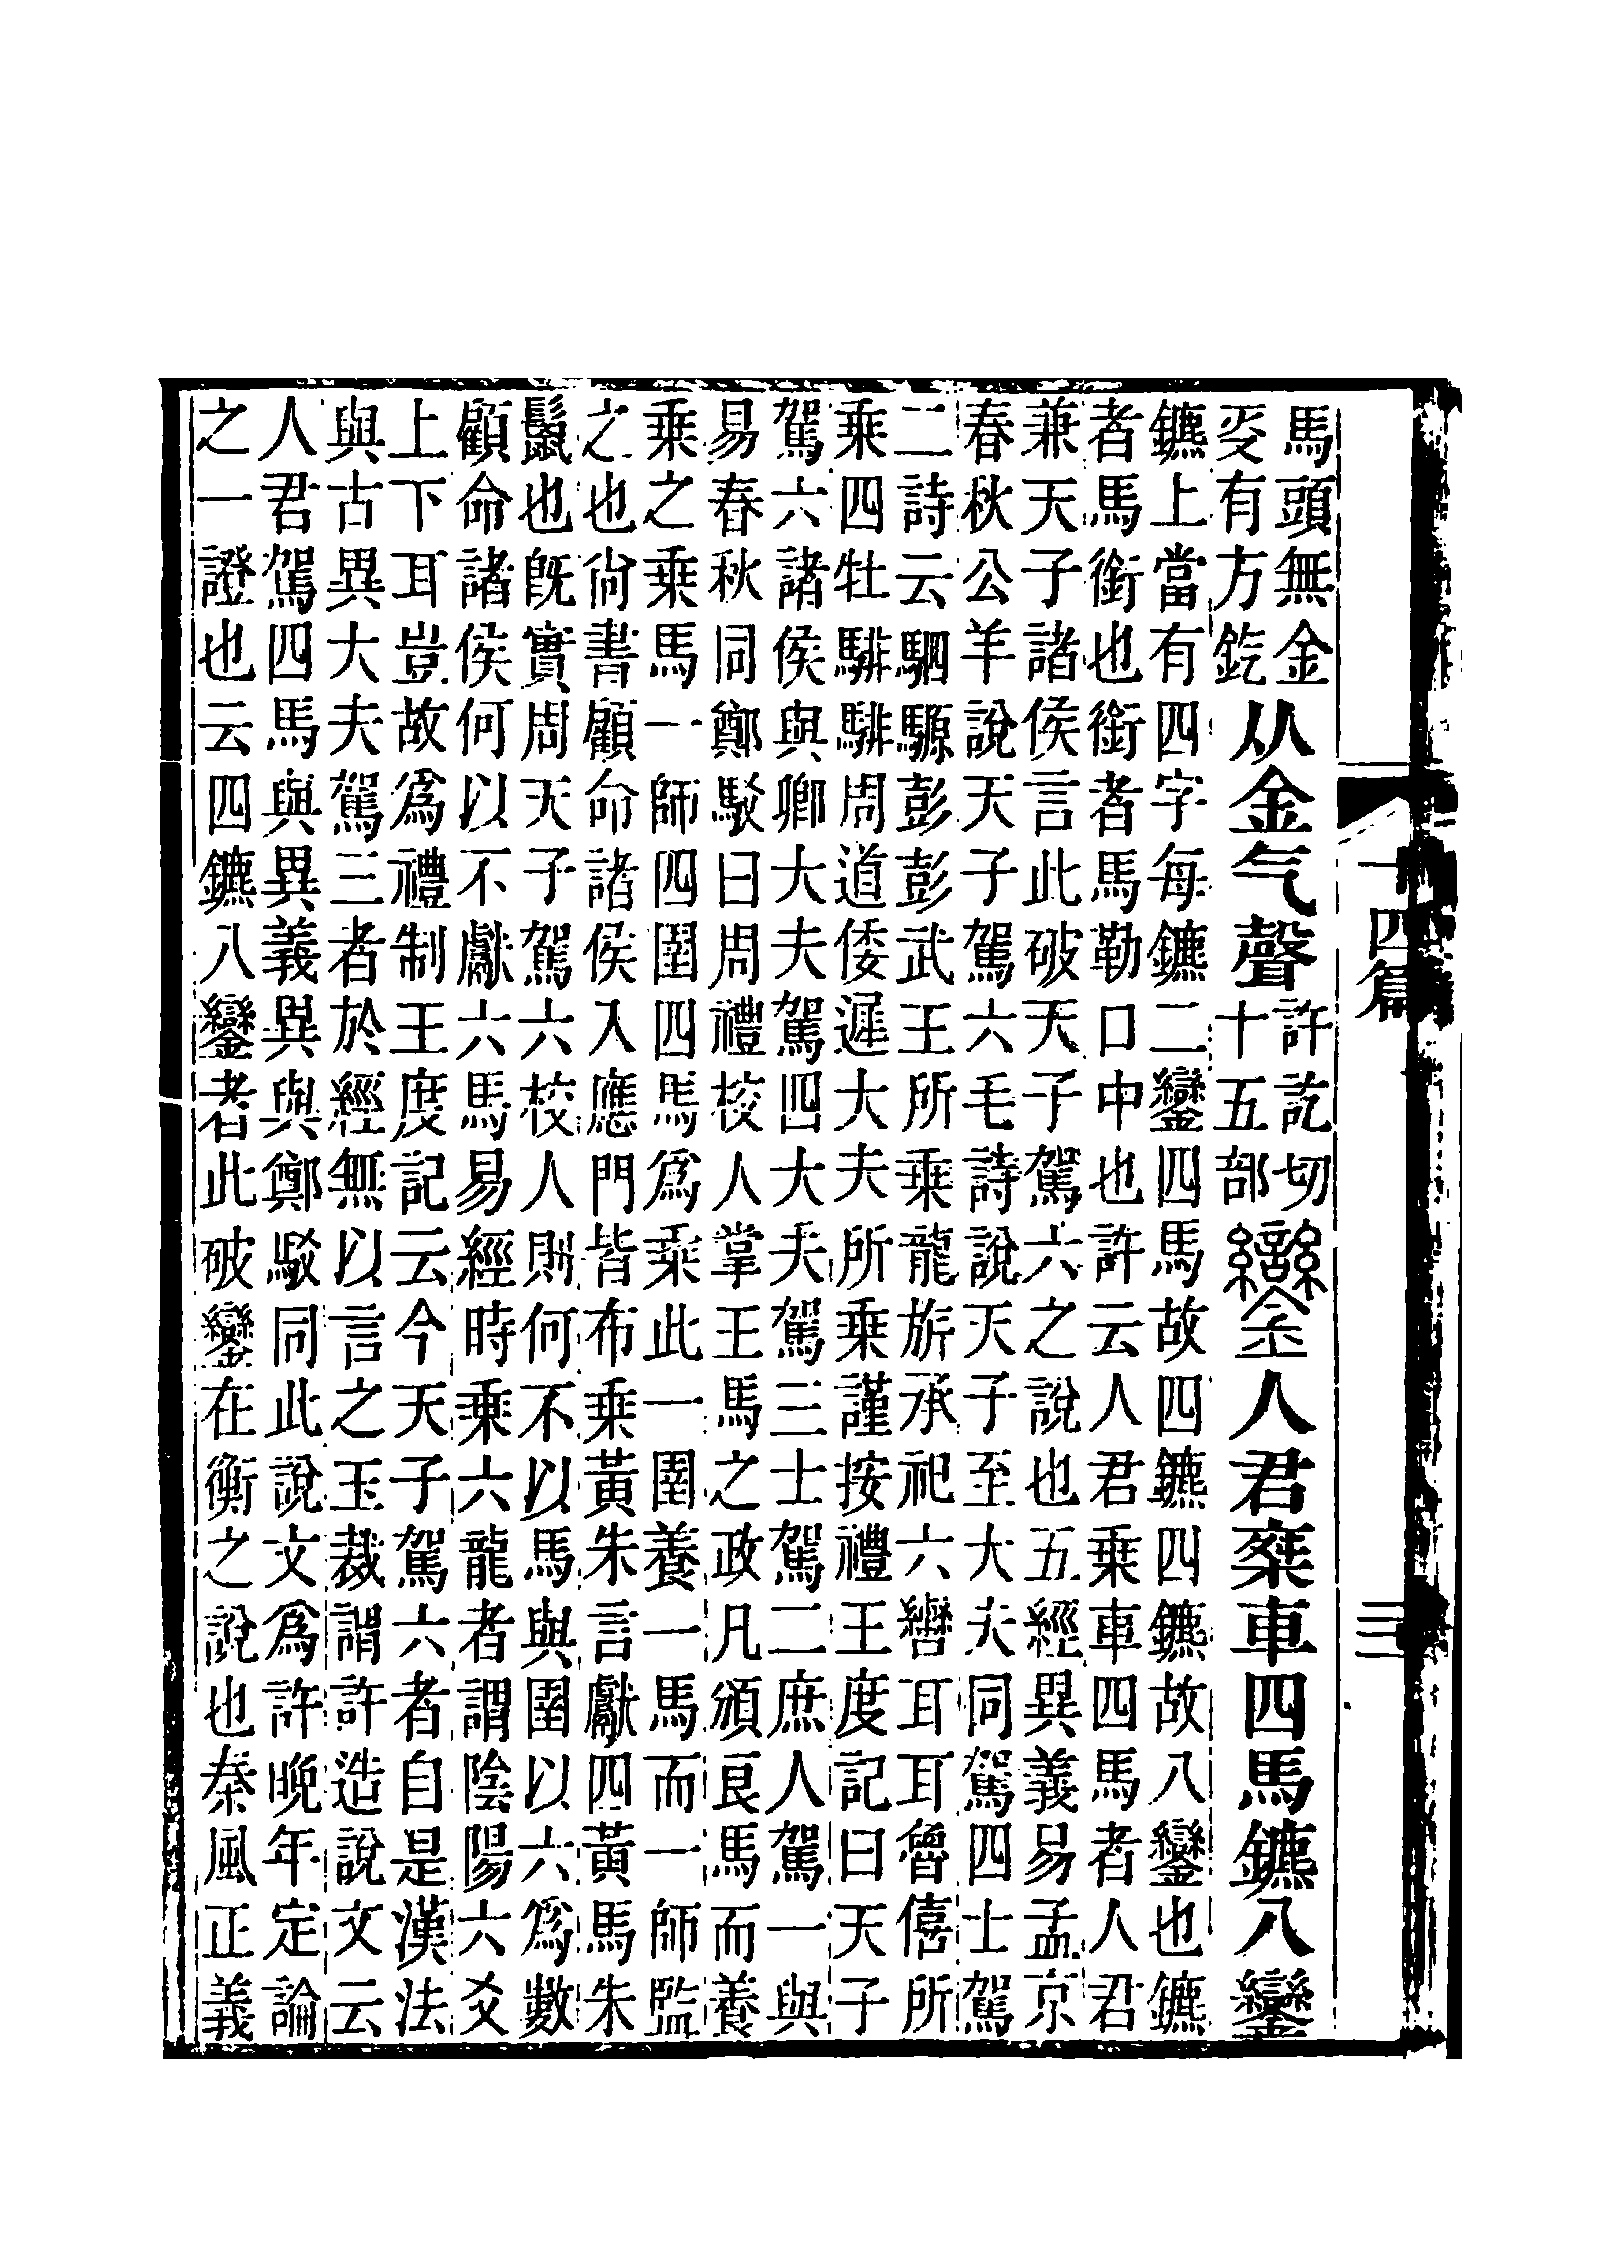 十四篇
三
馬頭無金
叐有方釳
从金气聲
許訖切
十五部
鑾人君乗車四馬鑣八鑾
鑣上當有四字每鑣二鑾四馬故四鑣四鑣故八鑾也鑣
者馬銜也銜者馬勒口中也許云人君乗車四馬者人君
兼天子諸侯言此破天子駕六之說也五經異義易孟京
春秋公羊說天子駕六毛詩說天子至大夫同駕四士駕
二詩云駟騵彭彭武王所乗龍旂承祀六轡耳耳魯僖所
乗四牡騑騑周道倭遲大夫所乗謹按禮王度記曰天子
駕六諸侯與卿大夫駕四大夫駕三士駕二庶人駕一與
易春秋同鄭駁曰周禮校人掌王馬之政凡頒良馬而養
乗之乗馬一師四圉四馬爲乗此一圉養一馬而一師監
之也尙書顧命諸侯入應門皆布乗黃朱言獻四黃馬朱
鬛也旣實周天子駕六校人則何不以馬與圉以六爲數
顧命諸侯何以不獻六馬易經時乗六龍者謂陰陽六爻
上下耳豈故爲禮制王度記云今天子駕六者自是漢法
與古異大夫駕三者於經無以言之玉裁謂許造說文云
人君駕四馬與異義異與鄭駁同此說文爲許晚年定論
之一證也云四鑣八鑾者此破鑾在衡之說也秦風正義